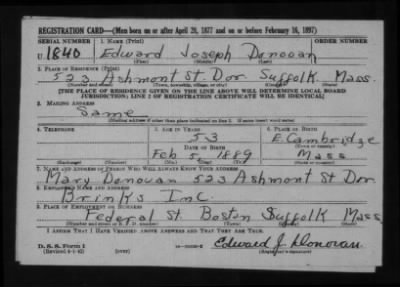 REGISTRATION CARD—(Men born on or after April 28, 1877 and on or before February 16, 1897)
SERIAL NUMBER 1. NAME (Print) ORDER NUMBER
U 1840 Edward Joseph Donovan
(First) (Middle) (Last)
2. PLACE OF RESIDENCE (Print)
523 Ashmont St. Dor. Suffolk Mass.
(Number and street) (Town, township, village, or city) (County) (State)
[THE PLACE OF RESIDENCE GIVEN ON THE LINE ABOVE WILL DETERMINE LOCAL BOARD
JURISDICTION; LINE 2 OF REGISTRATION CERTIFICATE WILL BE IDENTICAL]
3. MAILING ADDRESS
Same
[Mailing address if other than place indicated on line 2. If same insert word same]
4. TELEPHONE 5. AGE IN YEARS 6. PLACE OF BIRTH
53 E. Cambridge
DATE OF BIRTH (Town or county)
Feb 5 1889 Mass
(Exchange) (Number) (Mo.) (Day) (Yr.) (State or country)
7. NAME AND ADDRESS OF PERSON WHO WILL ALWAYS KNOW YOUR ADDRESS
Mary Donovan 523 Ashmont St Dor.
8. EMPLOYER'S NAME AND ADDRESS
Brinks Inc.
9. PLACE OF EMPLOYMENT OR BUSINESS
Federal St. Boston Suffolk Mass
(Number and street or R. F. D. number) (Town) (County) (State)
I AFFIRM THAT I HAVE VERIFIED ABOVE ANSWERS AND THAT THEY ARE TRUE.
D. S. S. Form 1
(Revised 4-1-42) (over) Edward J Donovan
(Registrant's signature)